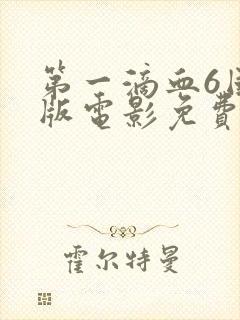 第一滴血6国
版电影免费
霍尔特曼